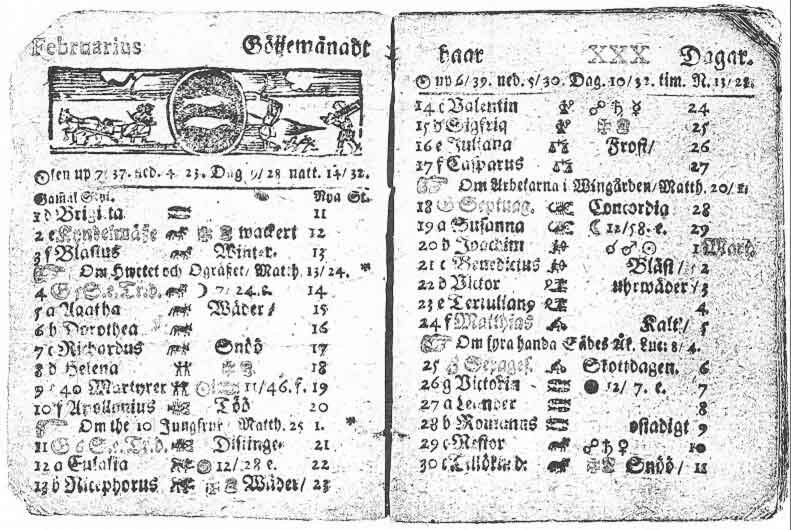 Februarius Göijemånadt
Solen up 7/37. ned. 4 23. Dag 9/28 natt. 14/32.
Gamal Styl. Nya St.
1 d Brigitta 11
2 e Kyndelmäße wackert 12
3 f Blasius Winter. 13
Om Hwetet och Ogräset/ Matth. 13/24.
4 G 5 S. e. Tr. d. ☽ 7/24. e. 14
5 a Agatha Wäder/ 15
6 b Dorothea 16
7 c Richardus Snöö 17
8 d Helena 18
9 e 40 Martyrer 11/46. f. 19
10 f Apollonius Töö 20
Om the 10 Jungfrur Matth. 25 1.
11 G 6 S. e. Tr. d. Distinge 21
12 a Eulalia 12/28 e. 22
13 b Nicephorus Wäder/ 23
haar XXX Dagar.
☉ up 6/39. ned. 5/30. Dag. 10/32. tim. N. 13/28.
14 c Valentin ☍ ♄ ☿ 24
15 d Sigfrid 25
16 e Juliana Frost/ 26
17 f Casparus 27
Om Arbetarna i Wingården/ Matth. 20/1.
18 G Septuag. Concordia 28
19 a Susanna ☾ 12/58. e. 29
20 b Joachim ☌ ♂ ☉ 1 Mart.
21 c Benedictus Bläst/ 2
22 d Victor uhrwäder/ 3
23 e Tertuliang 4
24 f Matthias Kalt/ 5
Om fyra handa Sädes Åk. Luc: 8/4.
25 G Sexages. Skottdagen. 6
26 g Victorin ● 12/7. e. 7
27 a Leander 8
28 b Romanus ostadigt 9
29 c Nestor ☍ ♄ ♀ 10
30 c Snöö/ 11